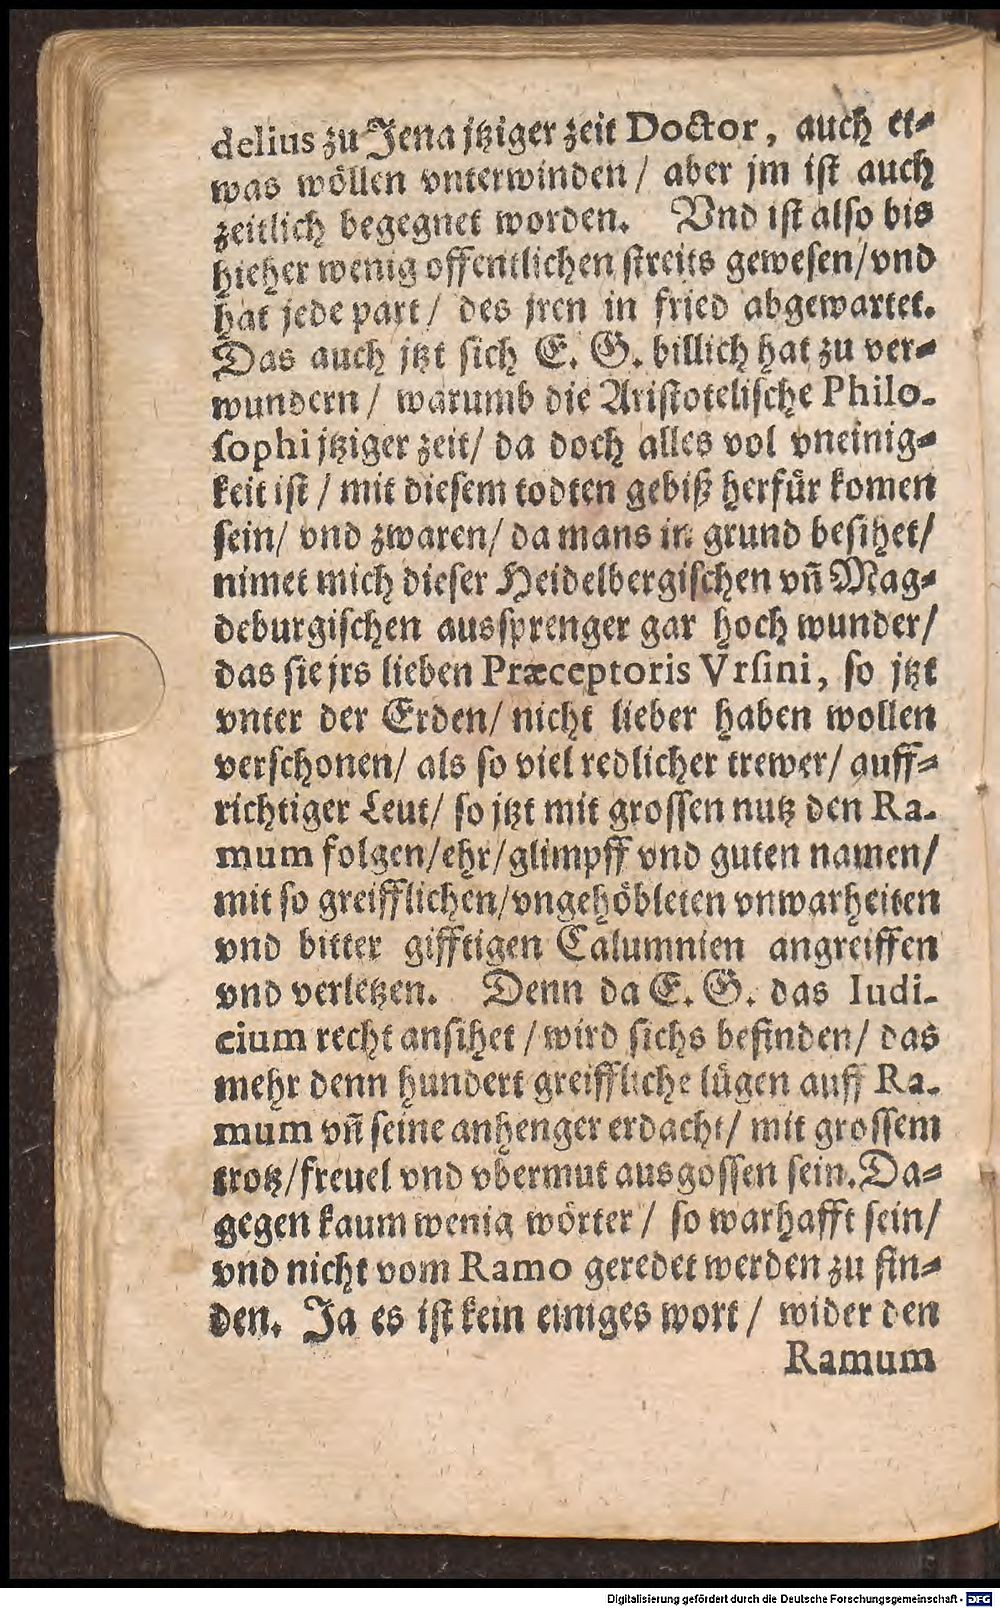 delius zu Jena jtziger zeit Doctor, auch et⸗
was wöllen vnterwinden / aber jm ist auch
zeitlich begegnet worden. Vnd ist also bis
hieher wenig offentlichen streits gewesen/vnd
hat jede part / des jren in fried abgewartet.
Das auch jtzt sich E. G. billich hat zu ver⸗
wundern / warumb die Aristotelische Philo-
sophi jtziger zeit/ da doch alles vol vneinig⸗
keit ist / mit diesem todten gebiß herfür komen
sein/ vnd zwaren/ da mans in grund besihet/
nimet mich dieser Heidelbergischen vñ Mag⸗
deburgischen aussprenger gar hoch wunder/
das sie jrs lieben Præceptoris Vrsini, so jtzt
vnter der Erden/ nicht lieber haben wollen
verschonen/ als so viel redlicher trewer/ auff⸗
richtiger Leut/ so jtzt mit grossen nutz den Ra-
mum folgen/ehr/glimpff vnd guten namen/
mit so greifflichen/vngehöbleten vnwarheiten
vnd bitter gifftigen Calumnien angreiffen
vnd verletzen. Denn da E. G. das Iudi-
cium recht ansihet / wird sichs befinden/ das
mehr denn hundert greiffliche lügen auff Ra-
mum vñ seine anhenger erdacht/ mit grossem
trotz/freuel vnd vbermut ausgossen sein. Da⸗
gegen kaum wenig wörter / so warhafft sein/
vnd nicht vom Ramo geredet werden zu fin⸗
den. Ja es ist kein einiges wort / wider den
Ramum
Digitalisierung gefördert durch die Deutsche Forschungsgemeinschaft - DFG